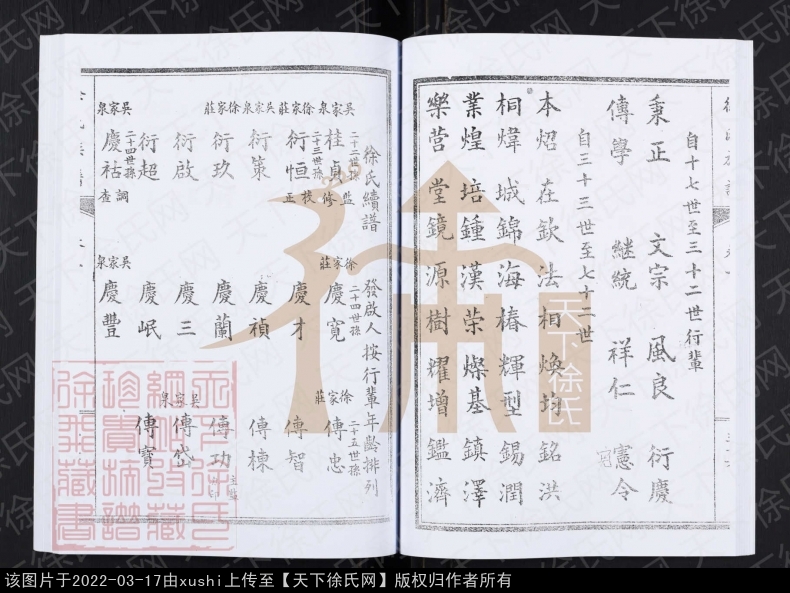 自十七世至三十二世行輩
秉正 文宗 風良 衍慶
傳學 繼統 祥仁 憲令
自三十三世至七十二世
本炤在欽法相煥均銘洪
桐煒城錦海椿輝型錫潤
業煌培鍾漢荣燦基鎮澤
樂营堂鏡源樹耀增鑑濟
徐氏續譜 發啟人按行輩年齡排列
吳家泉 二十二世孫 桂貞 監修
徐家莊 二十三世孫 衍恒 校正
吳家泉 衍策
徐家莊 衍玖
衍啟
衍超
吳家泉 二十四世孫 慶祜 調查
徐家莊 二十四世孫 慶寬
慶才
慶禎
慶蘭
慶三
慶岷
吳家泉 慶豐
徐家莊 二十五世孫 傳忠
傳智
傳棟
傳功
吳家泉 傳岱
傳寶
天下徐氏
天下徐氏网
该图片于2022-03-17由xushi上传至【天下徐氏网】版权归作者所有